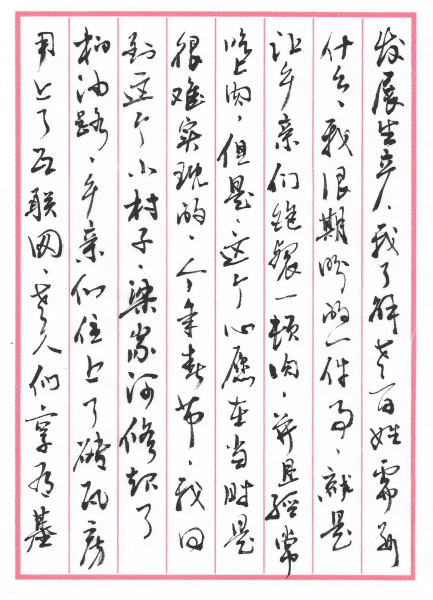 发展生产，我了解老百姓需要
什么，我很期盼的一件事，就是
让乡亲们饱餐一顿肉，并且经常
吃上肉，但是，这个心愿在当时是
很难实现的，今年春节，我回
到这个小村子，梁家河修起了
柏油路，乡亲们住上了砖瓦房
用上了互联网，老人们享有基